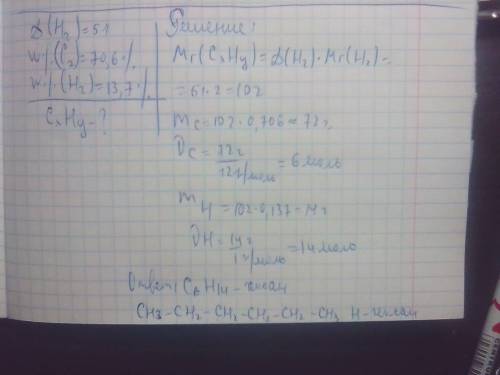 D(H₂)=51
w%(C₂)=70,6%
w%(H₂)=13,7%
CxHy-?
Решение:
Mr(CxHy)=D(H₂)·Mr(H₂)=
=51·2=102
mC=102·0,706=72г
νC=72г/12г/моль=6моль
mH=102·0,137=14г
νH=14г/1г/моль=14моль
Ответ: C₆H₁₄-гексан
CH₃-CH₂-CH₂-CH₂-CH₂-CH₃ Н-гексан